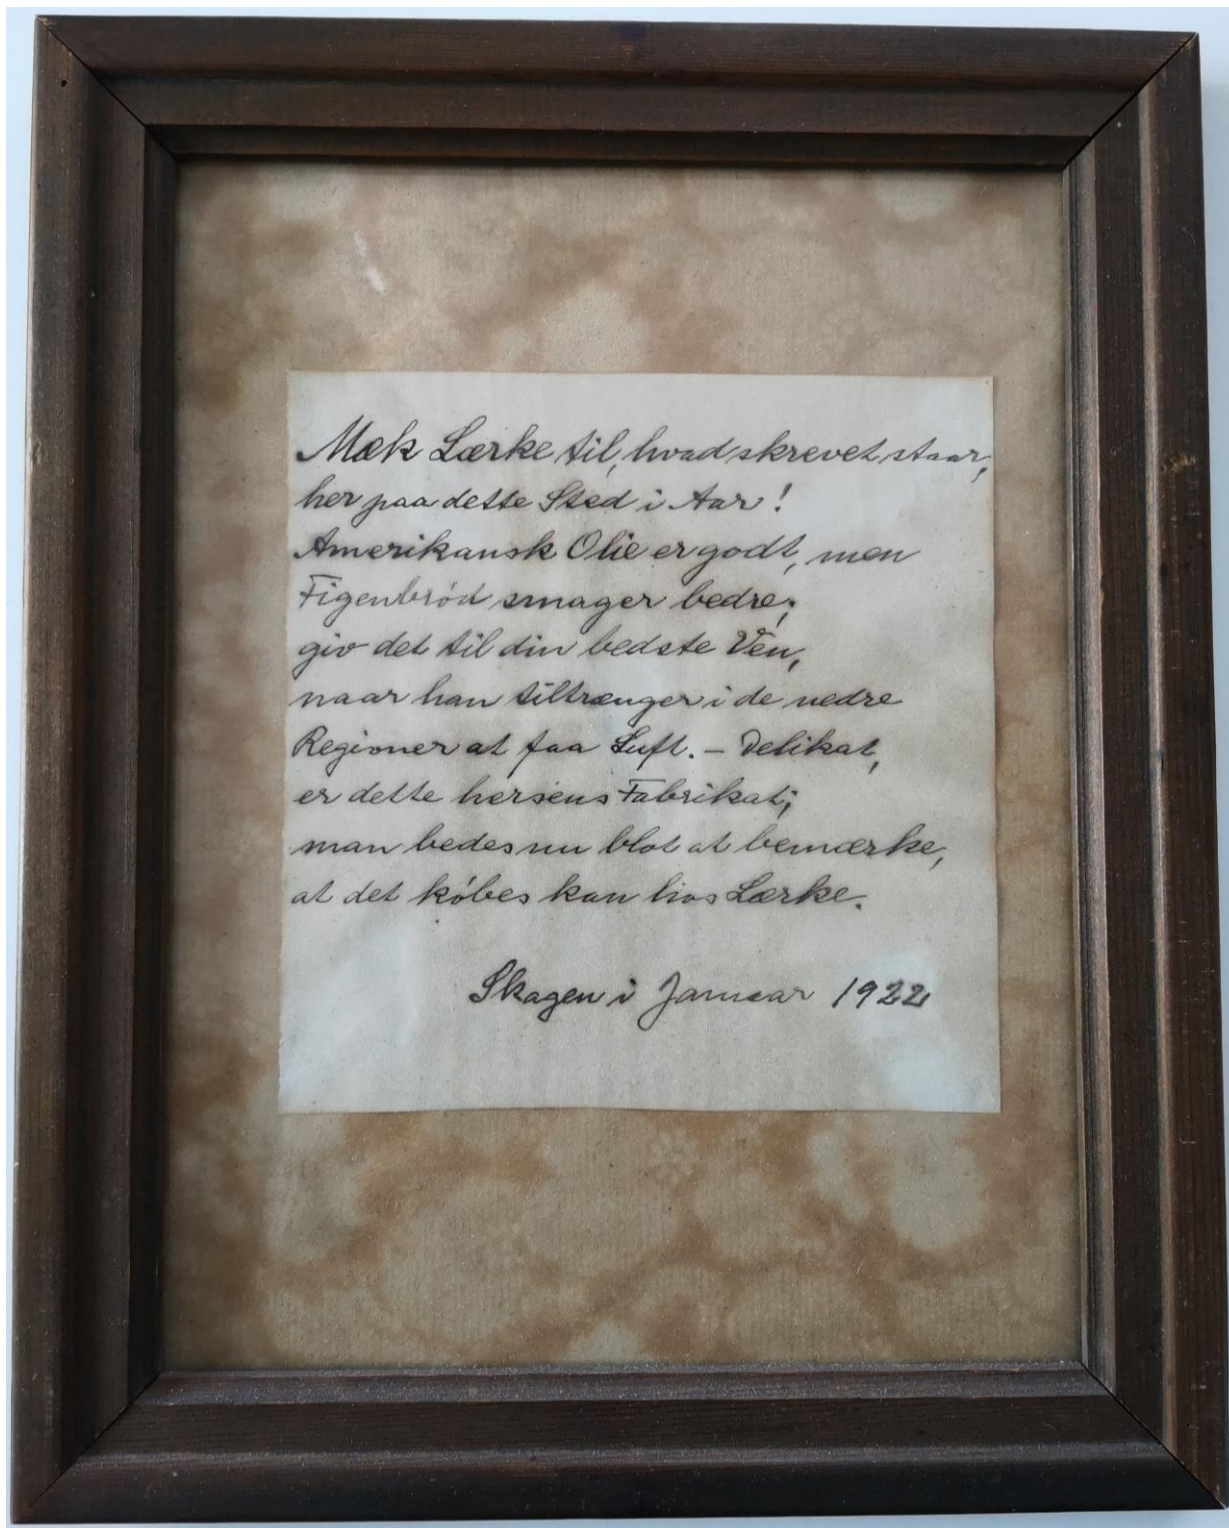 Mæk Lærke til, hvad skrevet staar,
her paa dette Sted i Aar!
Amerikansk Olie er godt, men
Figenbrød smager bedre;
giv det til din bedste Ven,
naar han tiltrænger i de nedre
Regioner at faa Luft. – Delikat,
er dette hersens Fabrikat;
man bedes nu blot at bemærke,
at det købes kan hos Lærke.
Skagen i Januar 1922